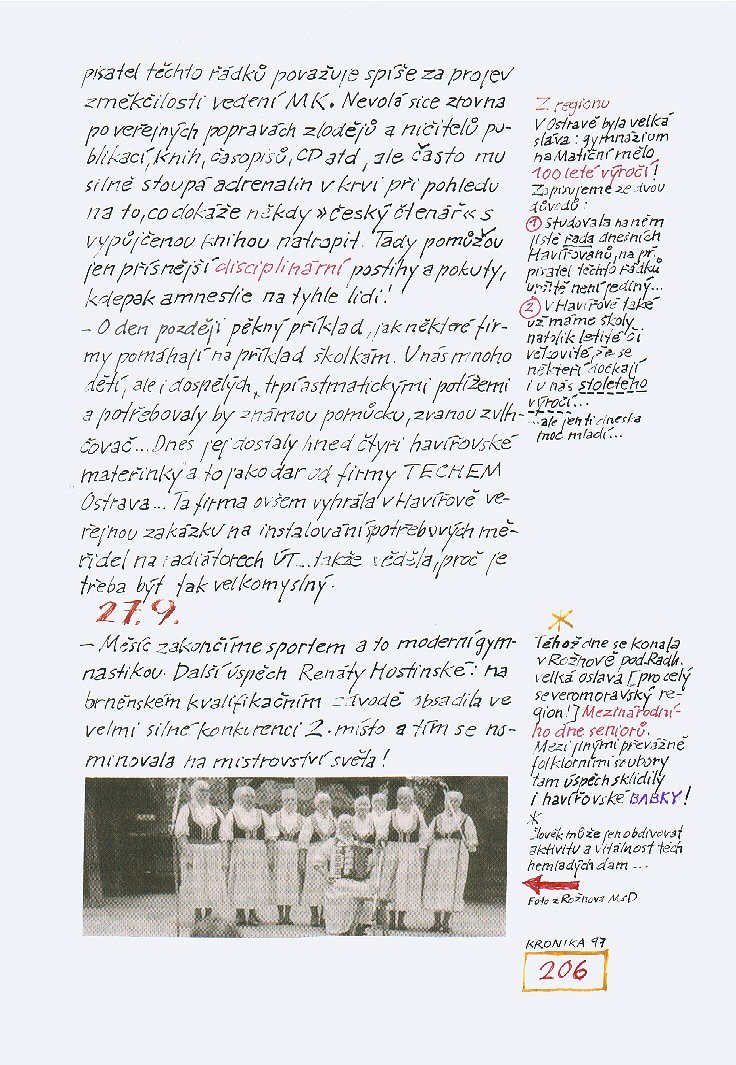 pisatel těchto řádků považuje spíše za projev
změkčilosti vedení MK. Nevolá sice zrovna
po veřejných popravách zlodějů a ničitelů pu-
blikací, knih, časopisů, CD atd, ale často mu
silně stoupá adrenalin v krvi při pohledu
na to, co dokáže někdy »český čtenář« s
vypůjčenou knihou natropit. Tady pomůžou
jen přísnější disciplinární postihy a pokuty,
kdepak amnestie na tyhle lidi!
– O den později pěkný příklad, jak některé fir-
my pomáhají na příklad školkám. U nás mnoho
dětí, ale i dospělých, trpí astmatickými potížemi
a potřebovaly by známou pomůcku, zvanou zvlh-
čovač... Dnes jej dostaly hned čtyři havířovské
mateřinky a to jako dar od firmy TECHEM
Ostrava... Ta firma ovšem vyhrála v Havířově ve-
řejnou zakázku na instalování spotřebových mě-
řidel na radiátorech ÚT... takže věděla, proč je
třeba být tak velkomyslný.
27.9.
– Měsíc zakončíme sportem a to moderní gym-
nastikou. Další úspěch Renáty Hostinské: na
brněnském kvalifikačním závodě obsadila ve
velmi silné konkurenci 2. místo a tím se no-
minovala na mistrovství světa!
Z regionu
V Ostravě byla velká
sláva: gymnázium
na Matiční mělo
100 leté výročí!
Zapisujeme ze dvou
důvodů:
1 Studovala na něm
jistě řada dnešních
Havířovanů, na př.
pisatel těchto řádků
určitě není jediný...
2 V Havířově také
už máme školy
natolik letité či
věkovité, že se
někteří dočkají
i u nás stoletého
výročí...
...ale jen ti dneska
moc mladí...
Téhož dne se konala
v Rožnově pod Radh.
velká oslava [pro celý
severomoravský re-
gion!] Mezinárodní-
ho dne seniorů.
Mezi jinými převážně
folklórními soubory
tam úspěch sklidily
i havířovské BABKY!
*
Člověk může jen obdivovat
aktivitu a vitálnost těch
nemladých dam...
Foto z Rožnova MSD
KRONIKA 97
206